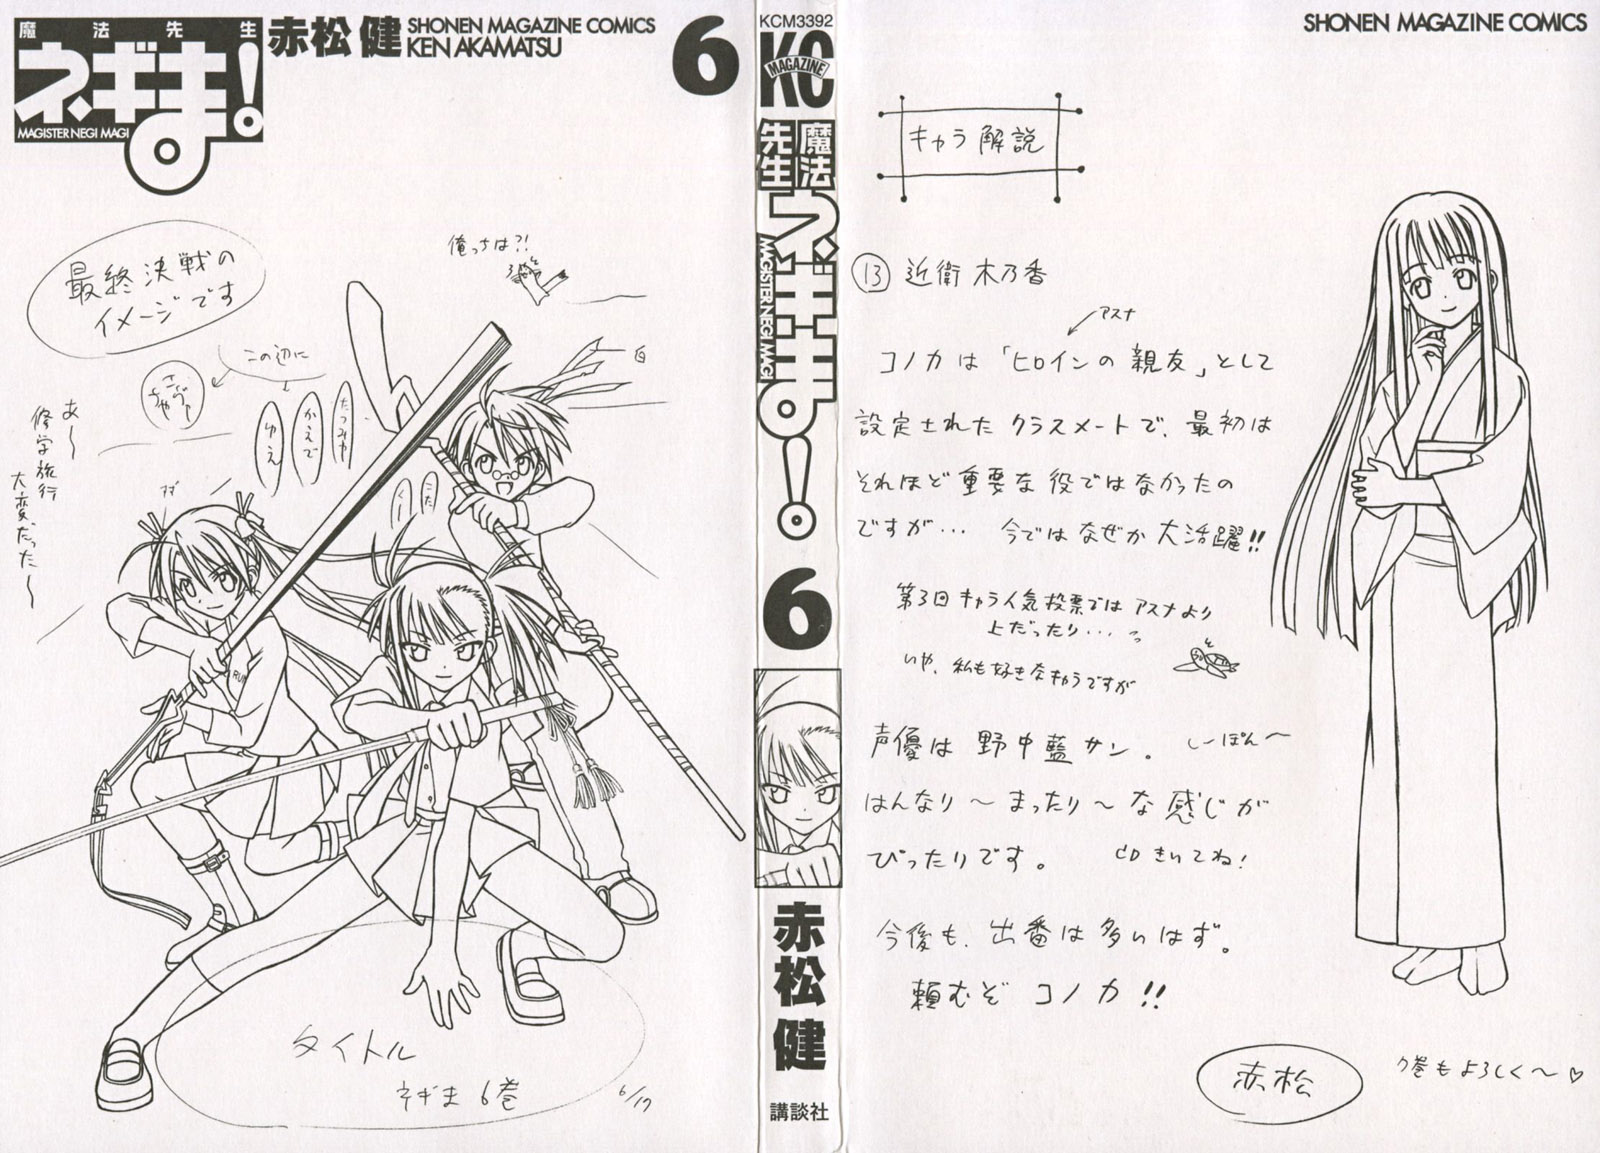 魔法先生
ネギま!
MAGISTER NEGI MAGI
赤松 健
SHONEN MAGAZINE COMICS
KEN AKAMATSU
6
最終決戦の
イメージです
俺っちは?!
この辺に
たつみや
かえで
ゆえ
こた
くー
あ〜
修学旅行
大変だった〜
タイトル
ネギま 6巻
6/17
KCM3392
KC
MAGAZINE
魔法先生
ネギま!
MAGISTER NEGI MAGI
6
赤松 健
講談社
SHONEN MAGAZINE COMICS
キャラ解説
⑬ 近衛 木乃香
アスナ
コノカは「ヒロインの親友」として
設定されたクラスメートで、最初は
それほど重要な役ではなかったの
ですが… 今ではなぜか大活躍!!
第3回キャラ人気投票ではアスナより
上だったり…
いや、私も好きなキャラですが
声優は 野中藍サン。 しーぽん〜
はんなり〜まったり〜な感じが
ぴったりです。 CDきいてね!
今後も、出番は多いはず。
頼むぞ コノカ!!
赤松
7巻もよろしく〜♡